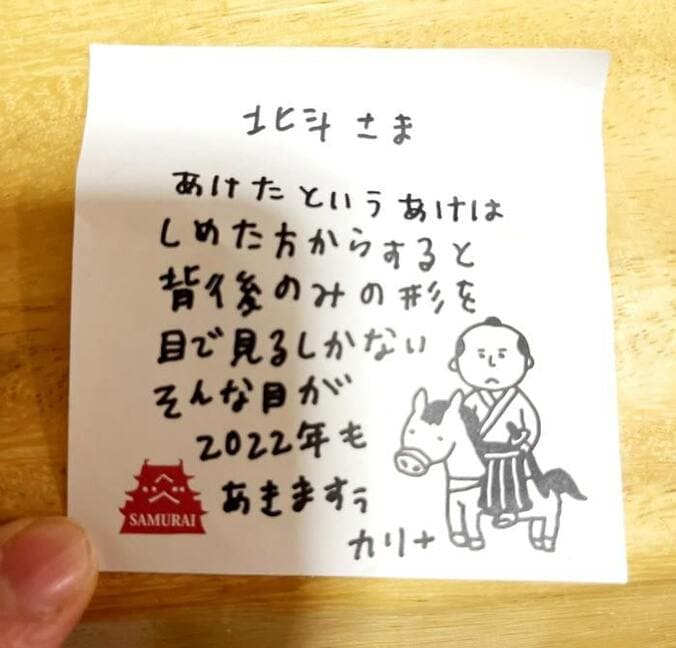 北斗 さま
あけたというあけは
しめた方からすると
背後のみの形を
目で見るしかない
そんな目が
2022年も
あきますぅ
カリナ
SAMURAI